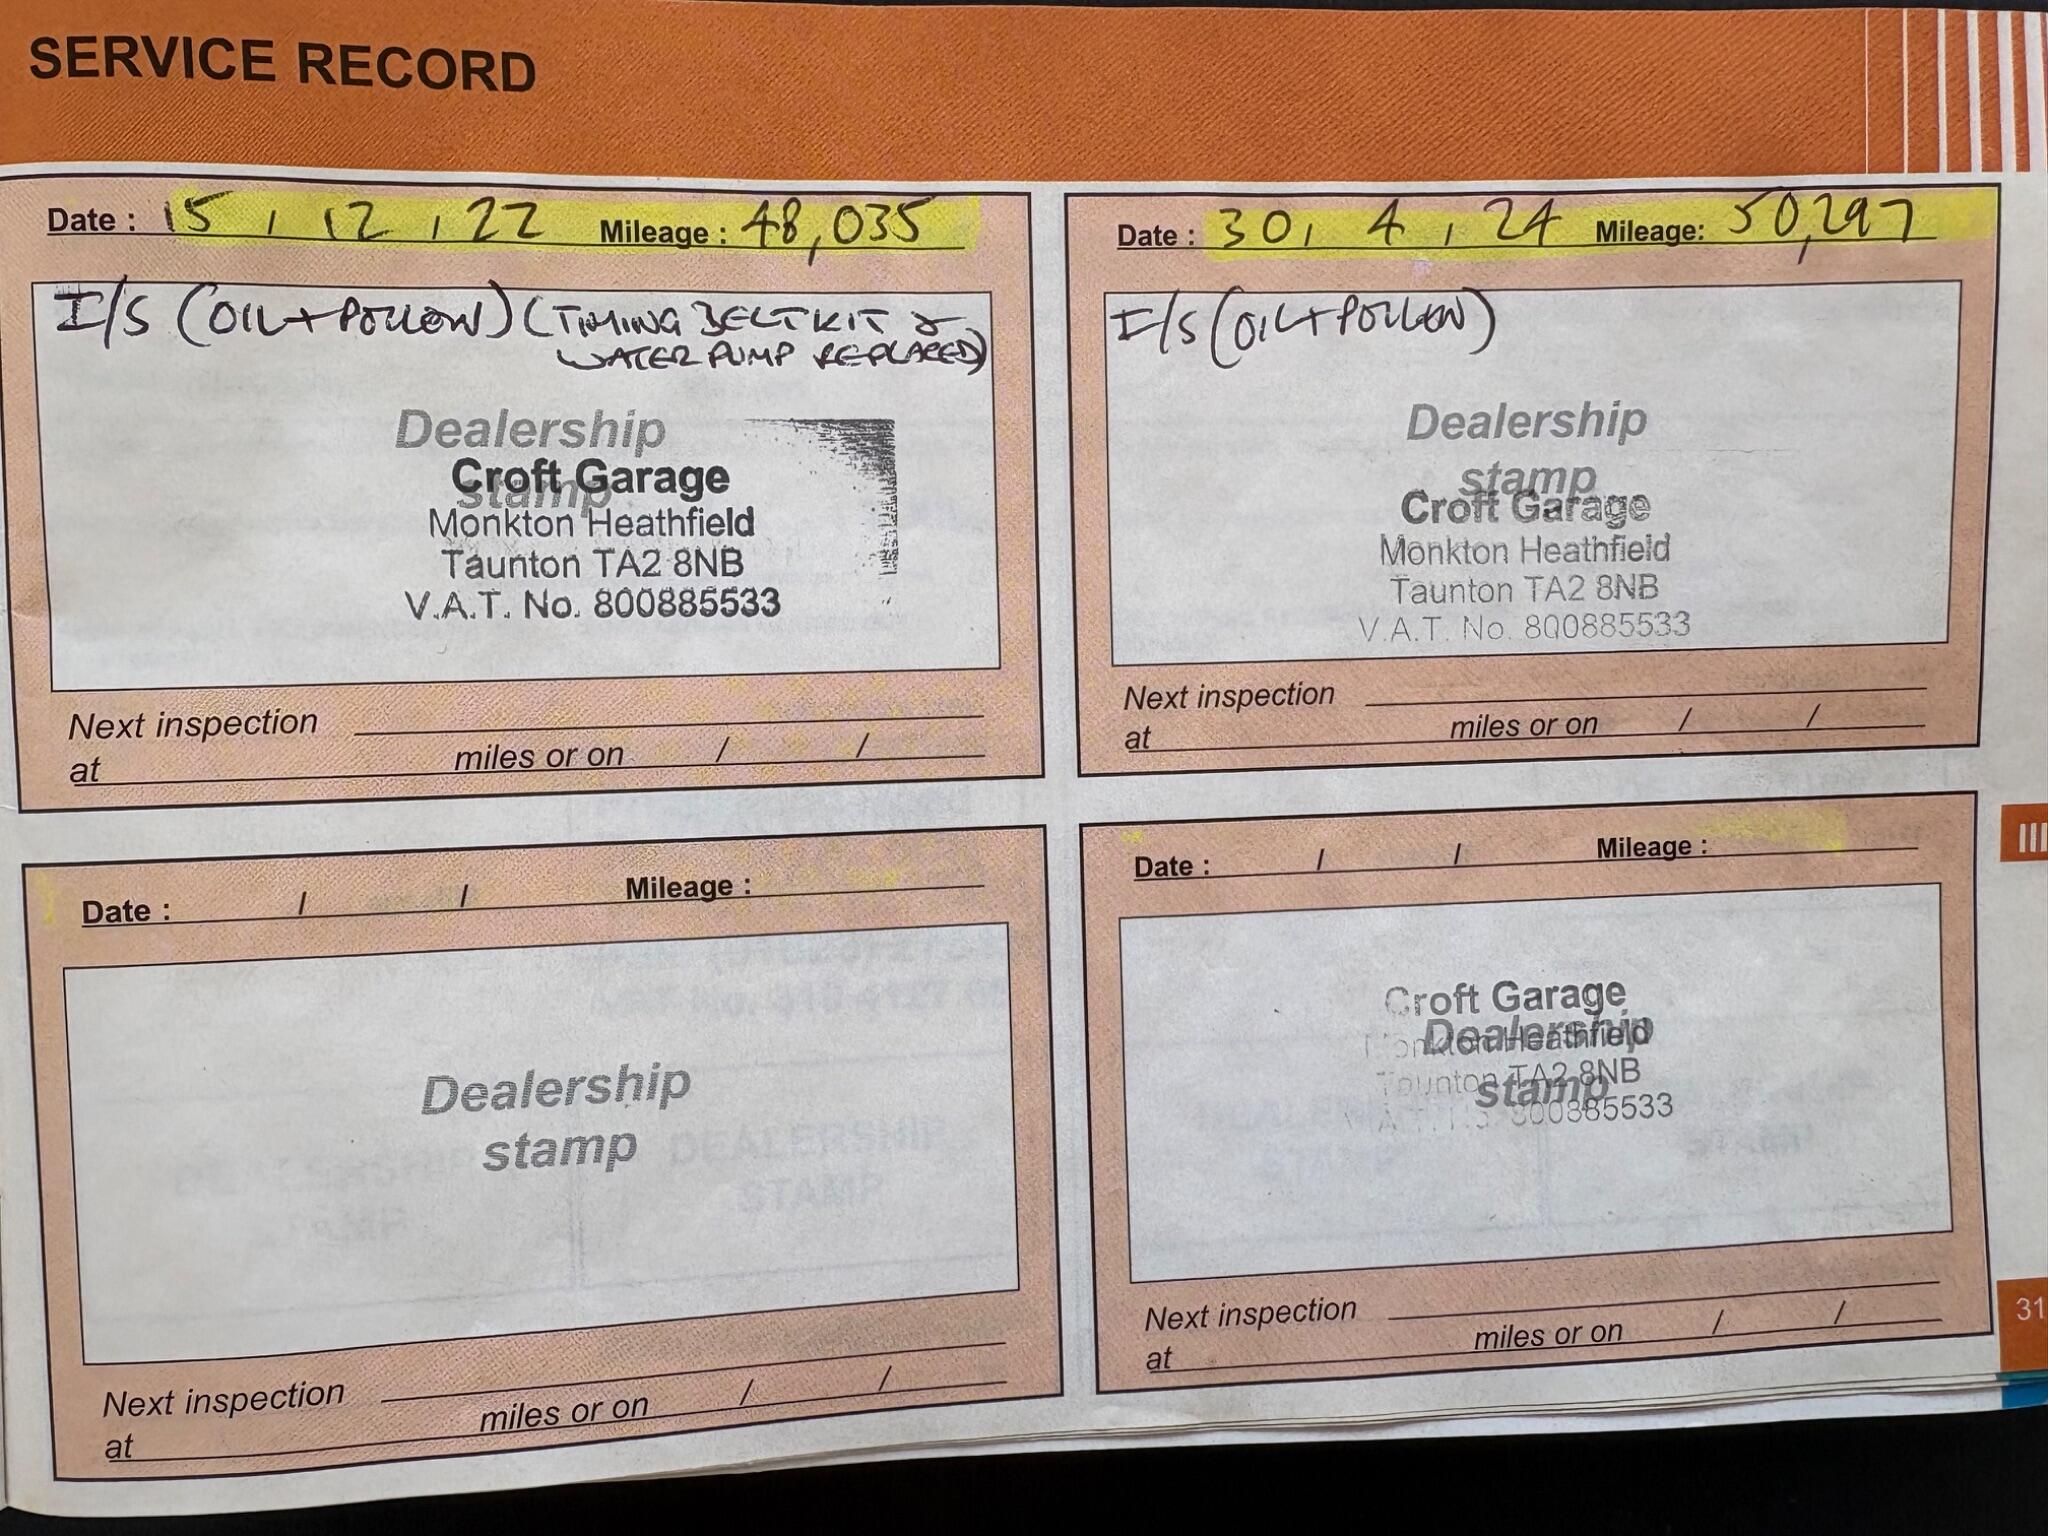 SERVICE RECORD
Date : 15 / 12 / 22 Mileage : 48,035
I/S (OIL + POLLEN) (TIMING BELT KIT &
WATER PUMP REPLACED)
Dealership
stamp
Croft Garage
Monkton Heathfield
Taunton TA2 8NB
V.A.T. No. 800885533
Next inspection
at miles or on / /
Date : 30 / 4 / 24 Mileage: 50,297
I/S (OIL + POLLEN)
Dealership
stamp
Croft Garage
Monkton Heathfield
Taunton TA2 8NB
V.A.T. No. 800885533
Next inspection
at miles or on / /
Date : / / Mileage :
Dealership
stamp
Next inspection
at miles or on / /
Date : / / Mileage :
Croft Garage
Dealership
Monkton Heathfield
Taunton TA2 8NB
stamp
V.A.T. No. 800885533
Next inspection
at miles or on / /
III
31